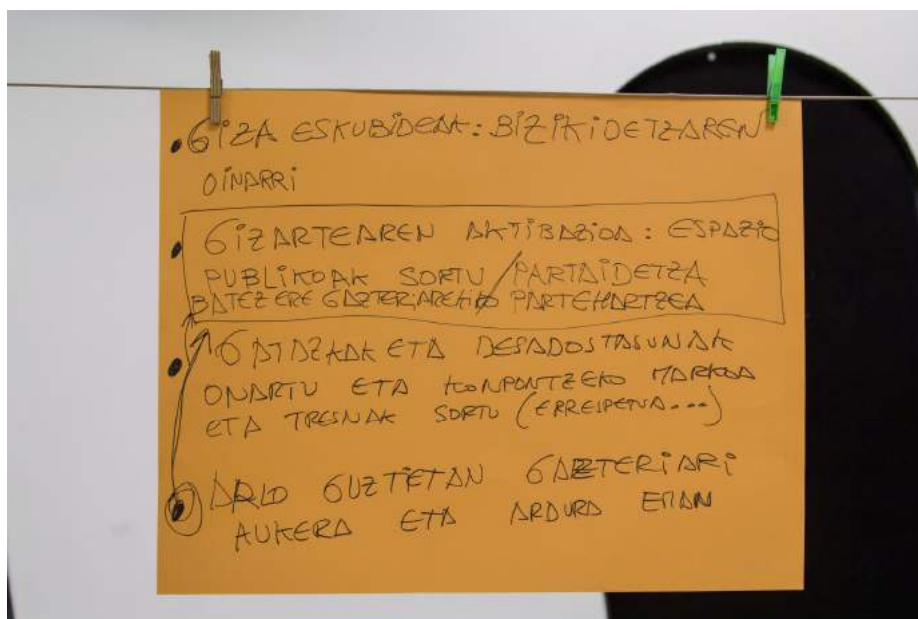 • GIZA ESKUBIDEAK: BIZIKIDETZAREN
OINARRI
• GIZARTEAREN AKTIBAZIOA: ESPAZIO
PUBLIKOAK SORTU / PARTAIDETZA
BATEZERE GAZTERIAREKIKO PARTEHARTZEA
• GATAZKAK ETA DESADOSTASUNAK
ONARTU ETA KONPONTZEKO MARKOA
ETA TRESNAK SORTU (ERRESPETUA...)
• ARLO GUZTIETAN GAZTERIARI
AUKERA ETA ARDURA EMAN